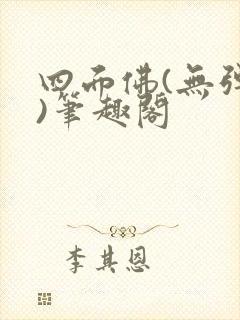 四面佛(無彈
)筆趣閣
李其恩